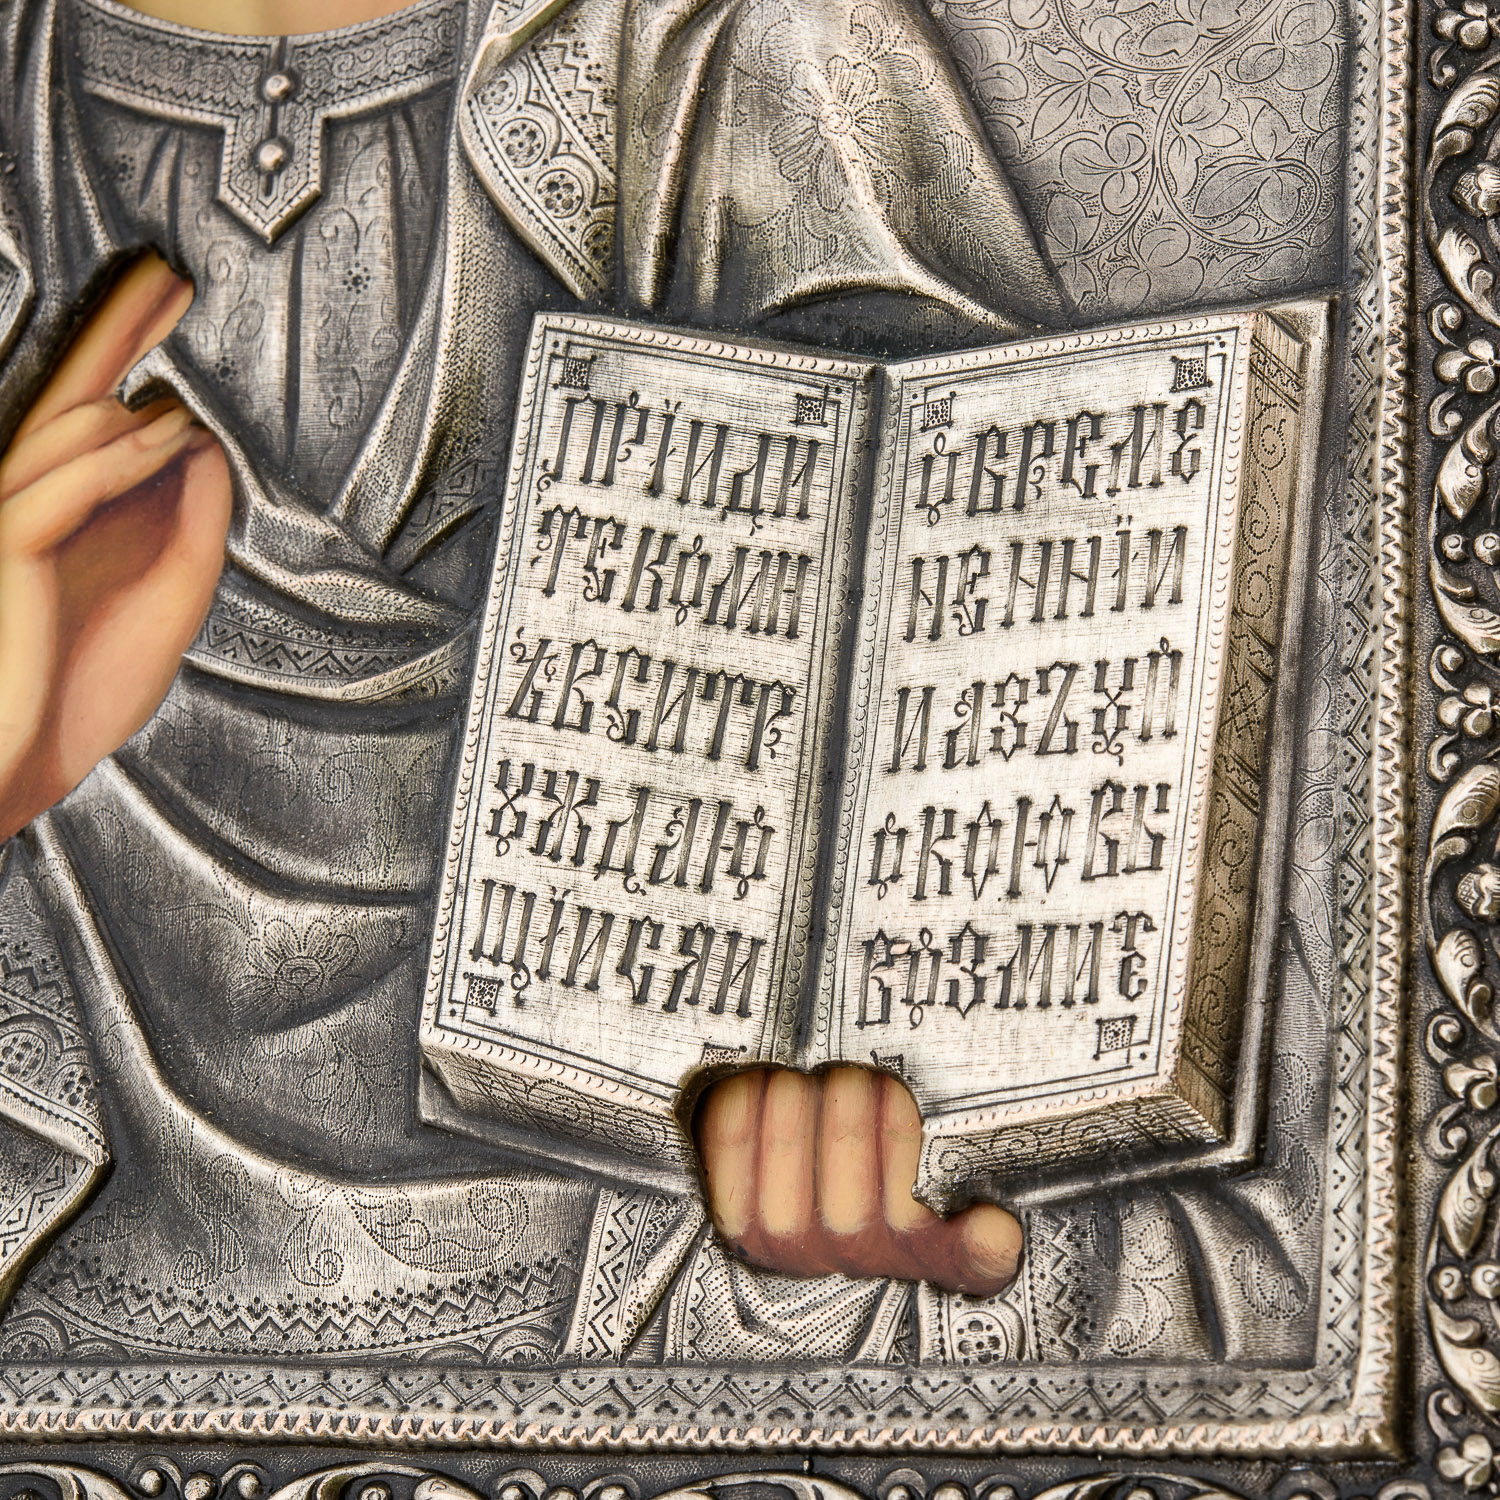 ПРІИДИ
ТЕКОМН
ѢВСИТР
ꙋЖДАЮ
ЩІИСЯИ
ѺБРЕМЕ
НЕННЇИ
ИАЗЪꙋП
ОКОЮВЫ
ВОЗМИТЕ